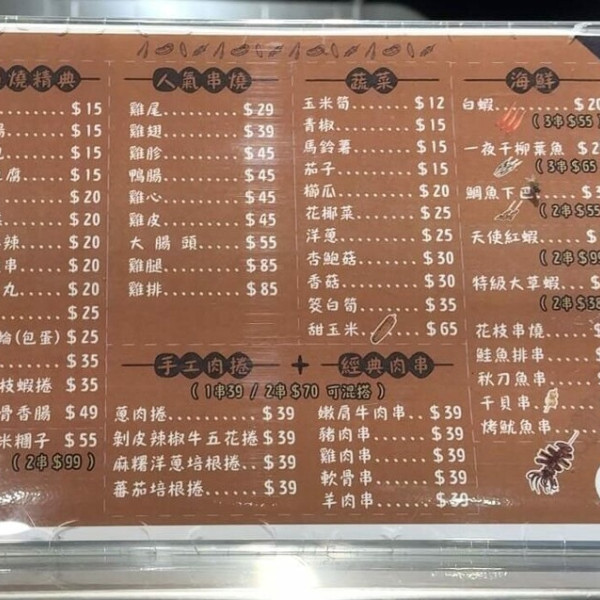 燒精典
$15
腸 $15
$15
腐 $15
$20
$20
辣 $20
串 $20
丸 $20
$25
輪(包蛋) $25
$35
枝蝦捲 $35
骨香腸 $49
米糰子 $55
(2串$99)
人氣串燒
雞尾 $29
雞翅 $39
雞胗 $45
鴨腸 $45
雞心 $45
雞皮 $45
大腸頭 $55
雞腿 $85
雞排 $85
蔬菜
玉米筍 $12
青椒 $15
馬鈴薯 $15
茄子 $15
櫛瓜 $20
花椰菜 $25
洋蔥 $25
杏鮑菇 $30
香菇 $30
筊白筍 $35
甜玉米 $65
手工肉捲 + 經典肉串
(1串39 / 2串$70 可混搭)
蔥肉捲 $39
剝皮辣椒牛五花捲 $39
麻糬洋蔥培根捲 $39
蕃茄培根捲 $39
嫩肩牛肉串 $39
豬肉串 $39
雞肉串 $39
軟骨串 $39
羊肉串 $39
海鮮
白蝦 $20
(3串$55)
一夜干柳葉魚 $2
(3串$65
鯛魚下巴 $3
(2串$55
天使紅蝦 $
(2串$9
特級大草蝦 $
(2串$38
花枝串燒
鮭魚排串
秋刀魚串
干貝串
烤魷魚串